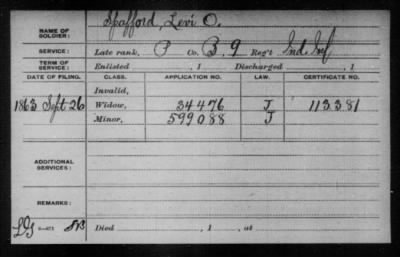 NAME OF SOLDIER: Spafford, Levi O.
SERVICE: Late rank, P Co. B, 9 Reg't Ind. Inf
TERM OF SERVICE: Enlisted , 1 Discharged , 1
DATE OF FILING. CLASS. APPLICATION NO. LAW. CERTIFICATE NO.
Invalid,
1863 Sept 26 Widow, 34476 J 113381
Minor, 599088 J
ADDITIONAL SERVICES:
REMARKS:
Died , 1 , at